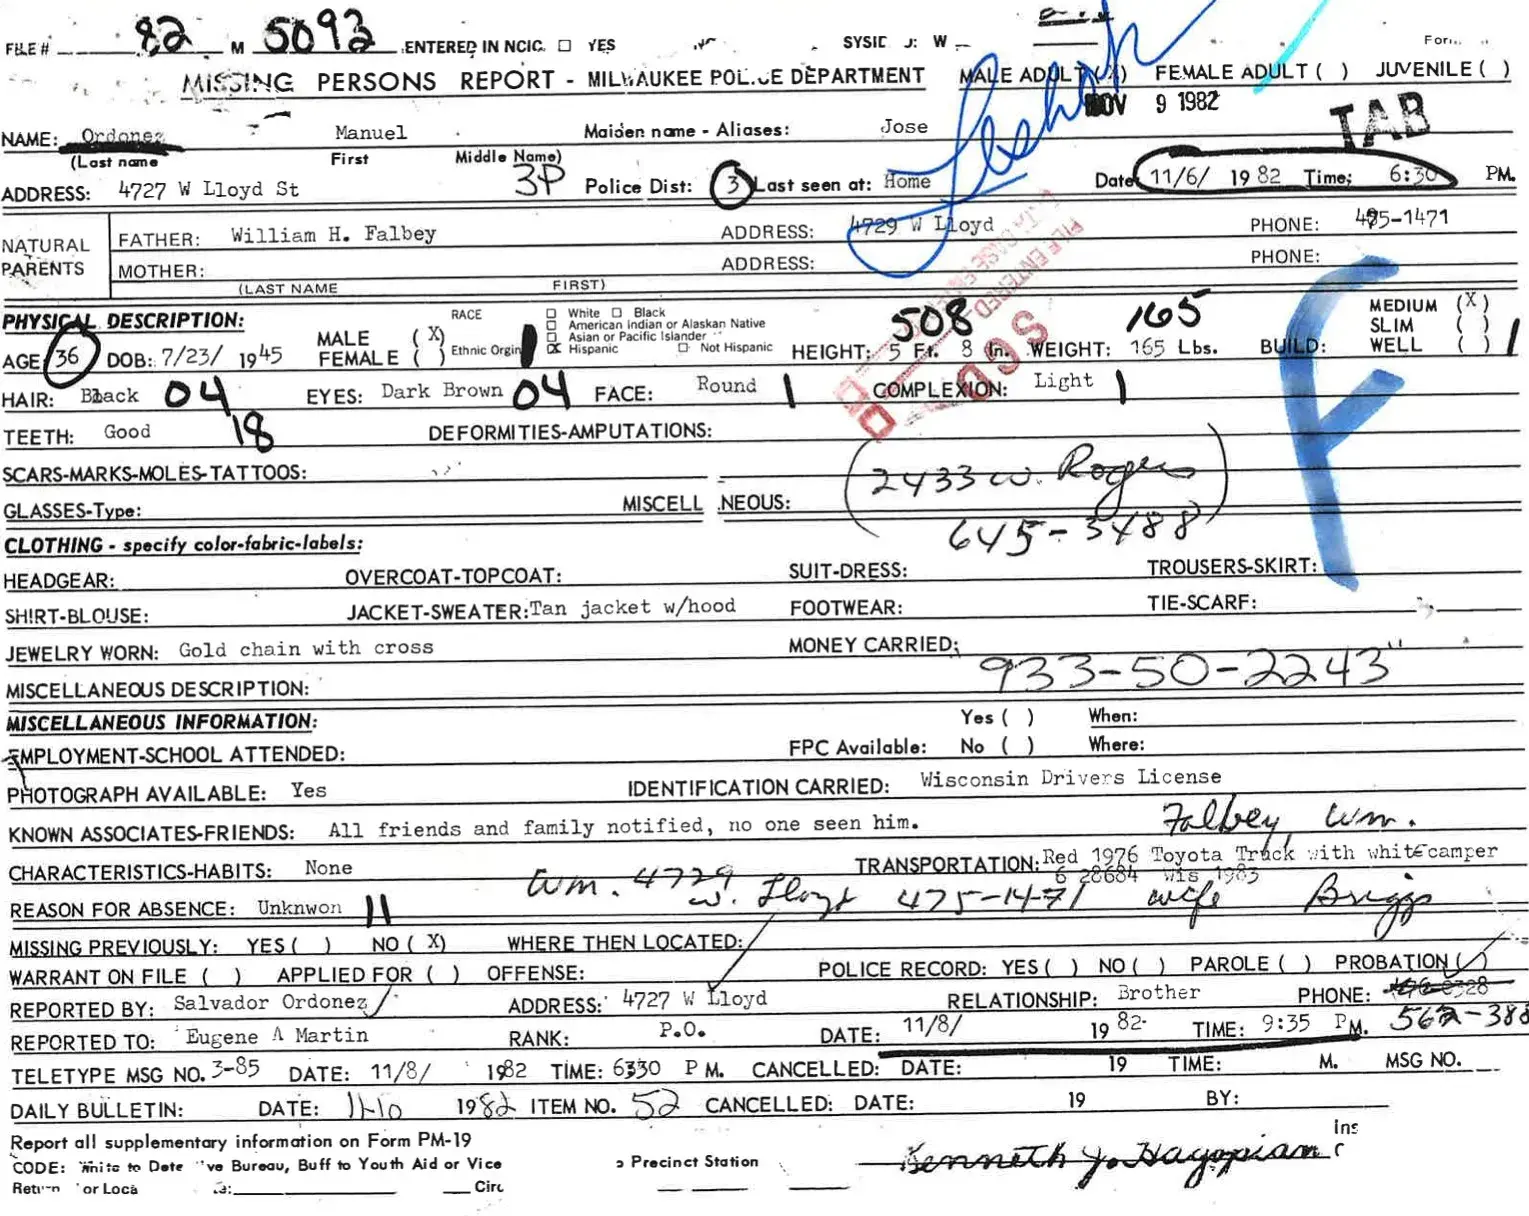 FILE # 82 M 5093 ENTERED IN NCIC ☐ YES W
MISSING PERSONS REPORT - MILWAUKEE POLICE DEPARTMENT MALE ADULT (X) FEMALE ADULT ( ) JUVENILE ( )
NOV 9 1982
TAB
NAME: Ordonez Manuel Maiden name - Aliases: Jose
(Last name First Middle Name)
3P
ADDRESS: 4727 W Lloyd St Police Dist: 3 Last seen at: Home Date 11/6/ 1982 Time; 6:30 PM.
NATURAL PARENTS
FATHER: William H. Falbey ADDRESS: 4729 W Lloyd PHONE: 475-1471
MOTHER: ADDRESS: PHONE:
(LAST NAME FIRST)
FILE ENTERED
PHYSICAL DESCRIPTION:
AGE: 36 DOB: 7/23/ 1945 MALE (X) FEMALE ( )
RACE ☐ White ☐ Black
☐ American Indian or Alaskan Native
☐ Asian or Pacific Islander
Ethnic Orgin ☒ Hispanic ☐ Not Hispanic
508 165
HEIGHT: 5 Ft. 8 In. WEIGHT: 165 Lbs. BUILD: MEDIUM (X) SLIM ( ) WELL ( )
HAIR: Black 04 EYES: Dark Brown 04 FACE: Round COMPLEXION: Light
TEETH: Good 18 DEFORMITIES-AMPUTATIONS:
SCARS-MARKS-MOLES-TATTOOS:
(2433 W. Rogers
GLASSES-Type: MISCELL NEOUS:
645-3488)
CLOTHING - specify color-fabric-labels:
HEADGEAR: OVERCOAT-TOPCOAT: SUIT-DRESS: TROUSERS-SKIRT:
SHIRT-BLOUSE: JACKET-SWEATER: Tan jacket w/hood FOOTWEAR: TIE-SCARF:
JEWELRY WORN: Gold chain with cross MONEY CARRIED:
933-50-2243"
MISCELLANEOUS DESCRIPTION:
MISCELLANEOUS INFORMATION: Yes ( ) When:
EMPLOYMENT-SCHOOL ATTENDED: FPC Available: No ( ) Where:
PHOTOGRAPH AVAILABLE: Yes IDENTIFICATION CARRIED: Wisconsin Drivers License
KNOWN ASSOCIATES-FRIENDS: All friends and family notified, no one seen him.
Falbey, Wm.
CHARACTERISTICS-HABITS: None TRANSPORTATION: Red 1976 Toyota Truck with white camper
Wis 1983
Wm. 4729 W. Lloyd 475-14-71 wife Briggs
REASON FOR ABSENCE: Unknwon
MISSING PREVIOUSLY: YES ( ) NO (X) WHERE THEN LOCATED:
WARRANT ON FILE ( ) APPLIED FOR ( ) OFFENSE: POLICE RECORD: YES ( ) NO ( ) PAROLE ( ) PROBATION (✓)
REPORTED BY: Salvador Ordonez ADDRESS: 4727 W Lloyd RELATIONSHIP: Brother PHONE:
REPORTED TO: Eugene A Martin RANK: P.O. DATE: 11/8/ 1982 TIME: 9:35 PM.
TELETYPE MSG NO. 3-85 DATE: 11/8/ 1982 TIME: 6330 P M. CANCELLED: DATE: 19 TIME: M. MSG NO.
DAILY BULLETIN: DATE: 11-10 1982 ITEM NO. 52 CANCELLED: DATE: 19 BY:
Report all supplementary information on Form PM-19
CODE: ve Bureau, Buff to Youth Aid or Vice Precinct Station
Kenneth J. Hagopian